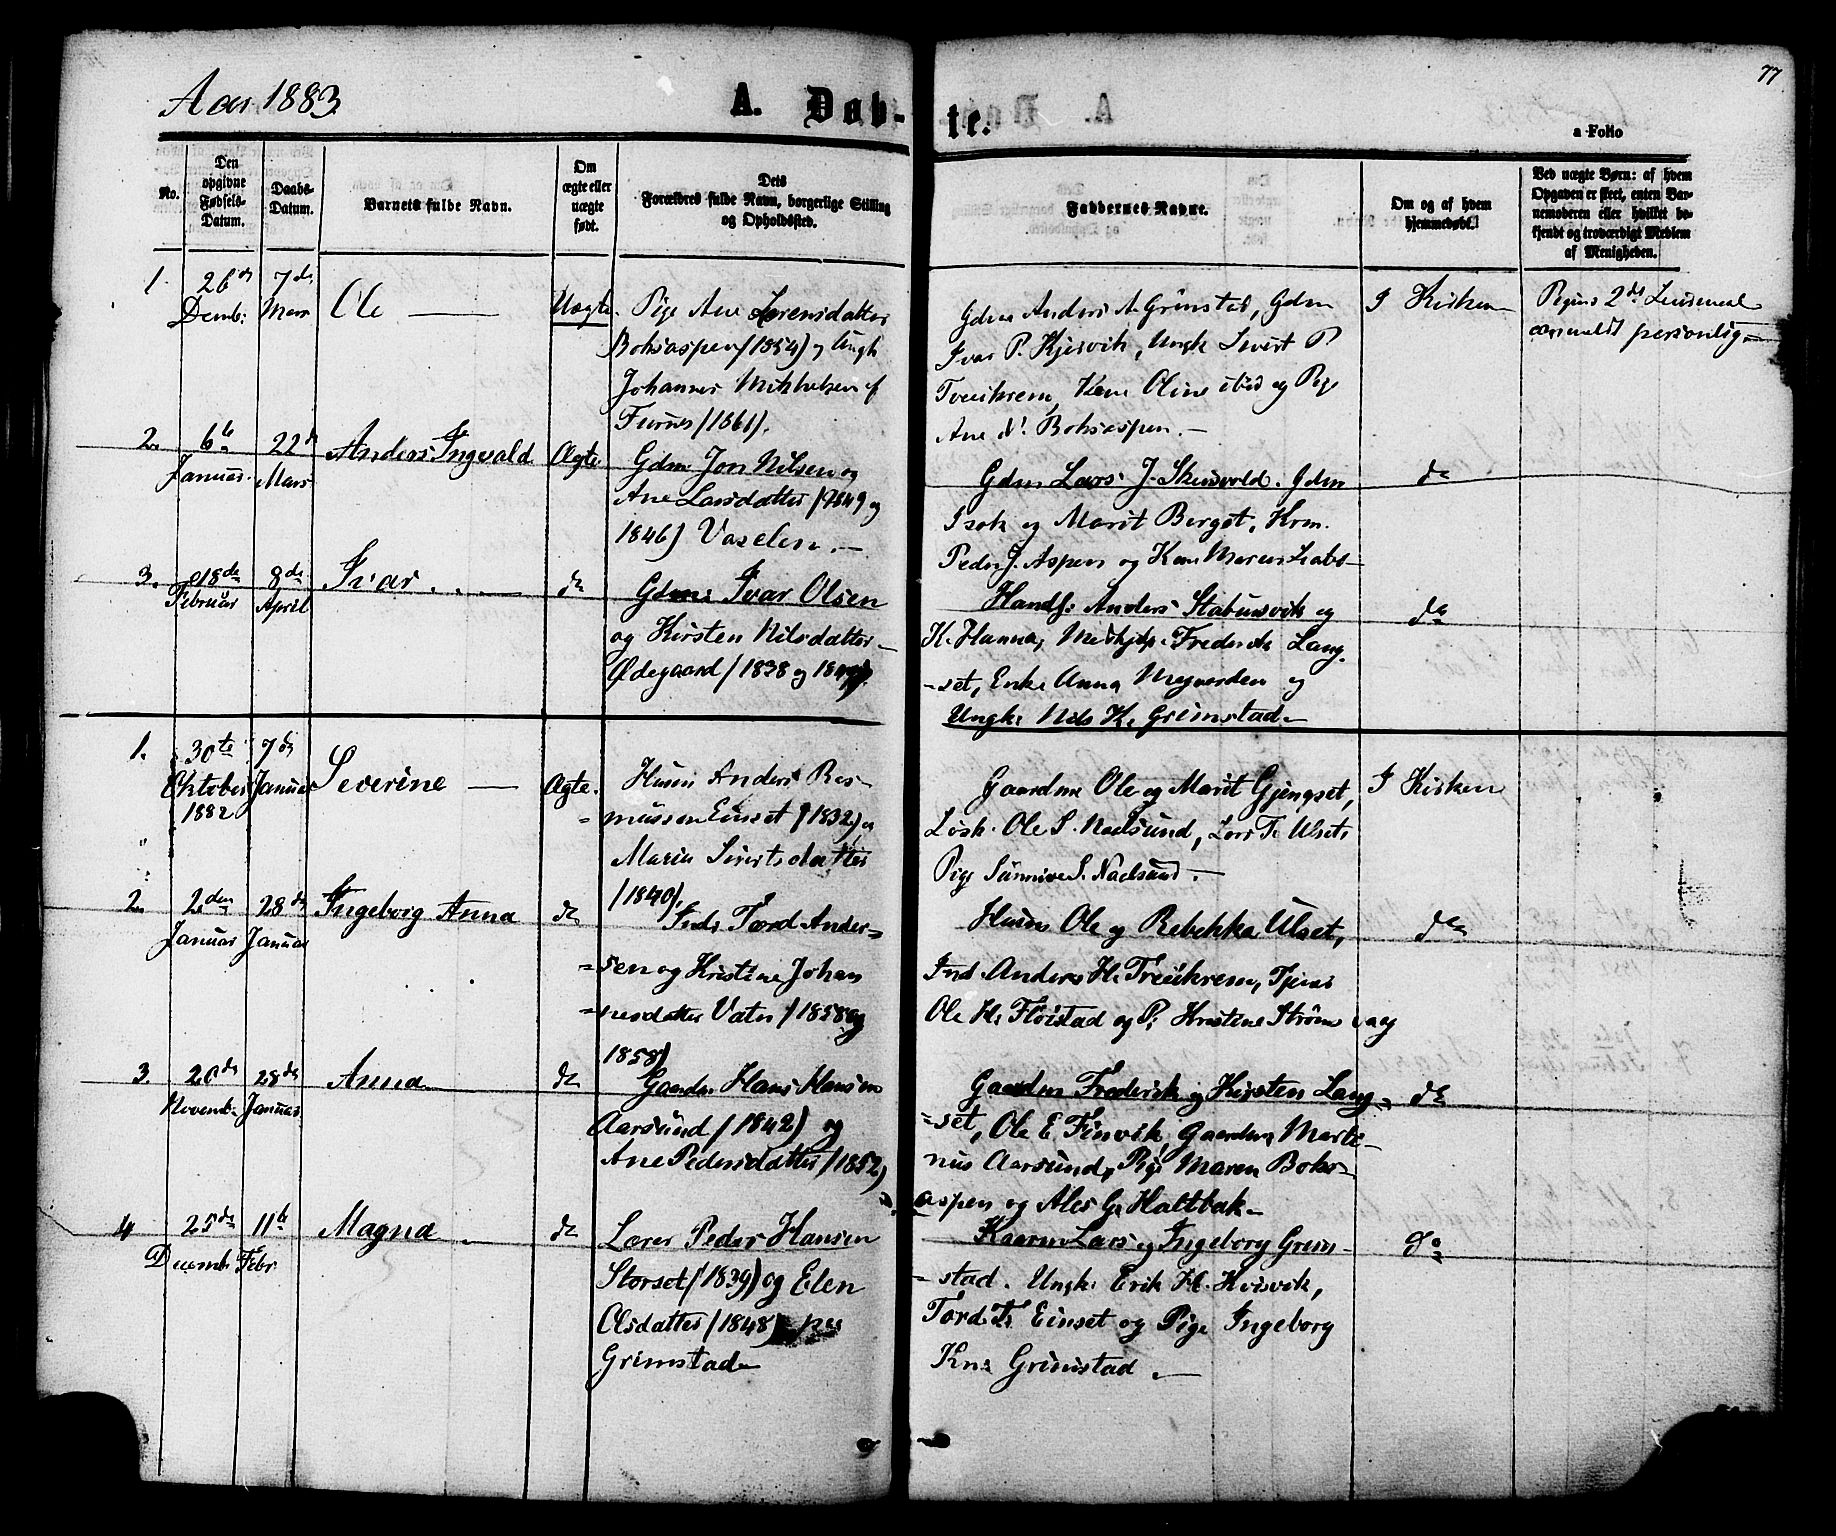 77
Aar 1883
A. Døb-
te.
a Folio
No.
Den opgivne Fødsels-Datum.
Daabs-Datum.
Barnets fulde Navn.
Om ægte eller uægte født.
Dets Forældres fulde Navn, borgerlige Stilling og Opholdssted.
Faddernes Navne.
Om og af hvem hjemmedøbt.
Ved uægte Børn: af hvem Opgaven er skeet, enten Barnemoderen eller hvilket bekjendt og troværdigt Medlem af Menigheden.
1.
26de
Demb:
7de
Mars
Ole
Uægte.
Pige Ane Lorensdatter
Boksaspen (1854) og Ungk
Johannes Mikkelsen
Furnes (1861).
Gdm Anders A Grimstad, Gdm
Ivar P. Kjisvik, Ungk Sivert P
Tveikrem, Kone Oline ibid og Pige
Ane Boksaspen. —
I Kirken
Pigens 2de Leiermaal
anmeldt personlig —
2.
6te
Januar.
22de
Mars
Anders Ingevald
Ægte
Gdm Jon Nilsen og
Ane Larsdatter (1849 og
1846) Vaselen. —
Gdm Lars J. Skeisvold. Gdm
Isak og Marit Berget, Krm.
Peder J. Aspen og Kone Maren
do
3.
18de
Februar
8de
April
Ivar
do
Gdm: Ivar Olsen
og Kirsten Nilsdatter
Ødegaard (1838 og
Handl: Anders Stabursvik og
K. Hanna, Frederik Lang-
-set, Enke Anna og
Ungk: Nils K. Grimstad —
do
1.
30te
Oktober
1882
7de
Januar
Severine
Ægte.
Husm Anders Ras-
mussen Einset (1832) og
Maria Sivertsdatter
(1840).
Gaardm Ole og Marit Gjengset,
Løsk. Ole S. Nadsund, Lars T. Ulset
Pige Sunnive S. Nadsund. —
I Kirken
2.
2den
Januar
28de
Januar
Ingeborg Anna
do
Inds Tord Ander-
sen og Kristine Johan
nesdatter Vatn (1858 og
1858)
Husm Ole og Rebekka Ulset,
Ind. Anders H. Treekrem, Tjener
Ole H. Fløistad og P. Kristine Strømsvaag
do
3.
20de
Novemb.
28de
Januar.
Anna
do
Gaardm. Hans Hansen
Aarsund (1842) og
Ane Pedersdatter (1852)
Gaardm Frederik og Kirsten Lang-
set, Ole E Finvik, Gaardm Marti-
nus Aarsund, Pige Maren Boks-
aspen og Ales G. Holtbak —
do
4
25de
Decemb.
11te
Febr
Magna
do
Lærer Peder Hansen
Storset (1839) og Elen
Olsdatter (1848) paa
Grimstad —
Kaarm Lars og Ingeborg Grim-
stad. Ungk: Erik H. Kvisvik,
Tord T. Einset og Pige Ingeborg
Kn: Grimstad. —
do